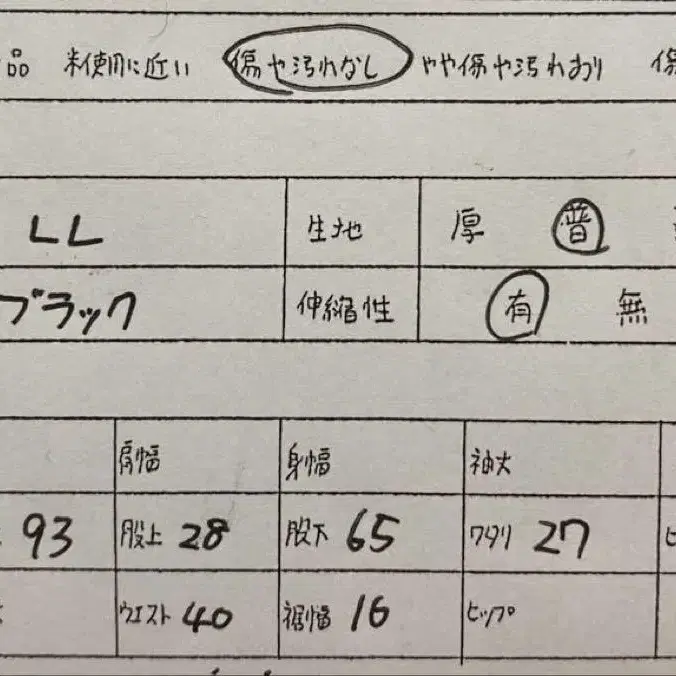 品 未使用に近い 傷や汚れなし やや傷や汚れあり 傷
LL 生地 厚 普
ブラック 伸縮性 有 無
肩幅 身幅 袖丈
93 股上 28 股下 65 ワタリ 27 ヒ
ウエスト 40 裾幅 16 ヒップ